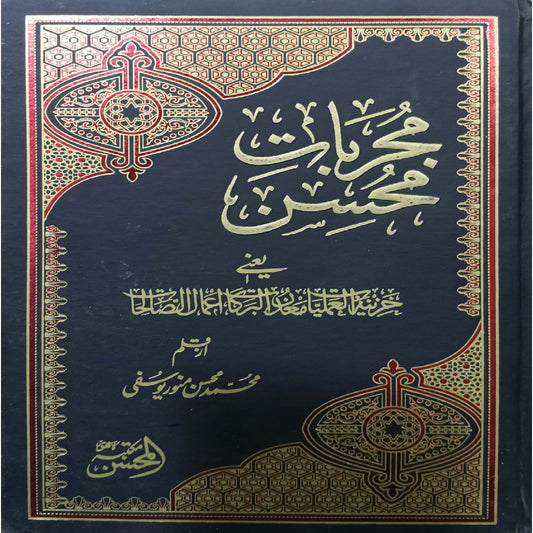 مجربات
محسن
یعنی
خزینۃ العملیات معدن البرکات اعمال الصالحات
از قلم
محمد محسن منور یوسفی
مکتبہ
المحسن